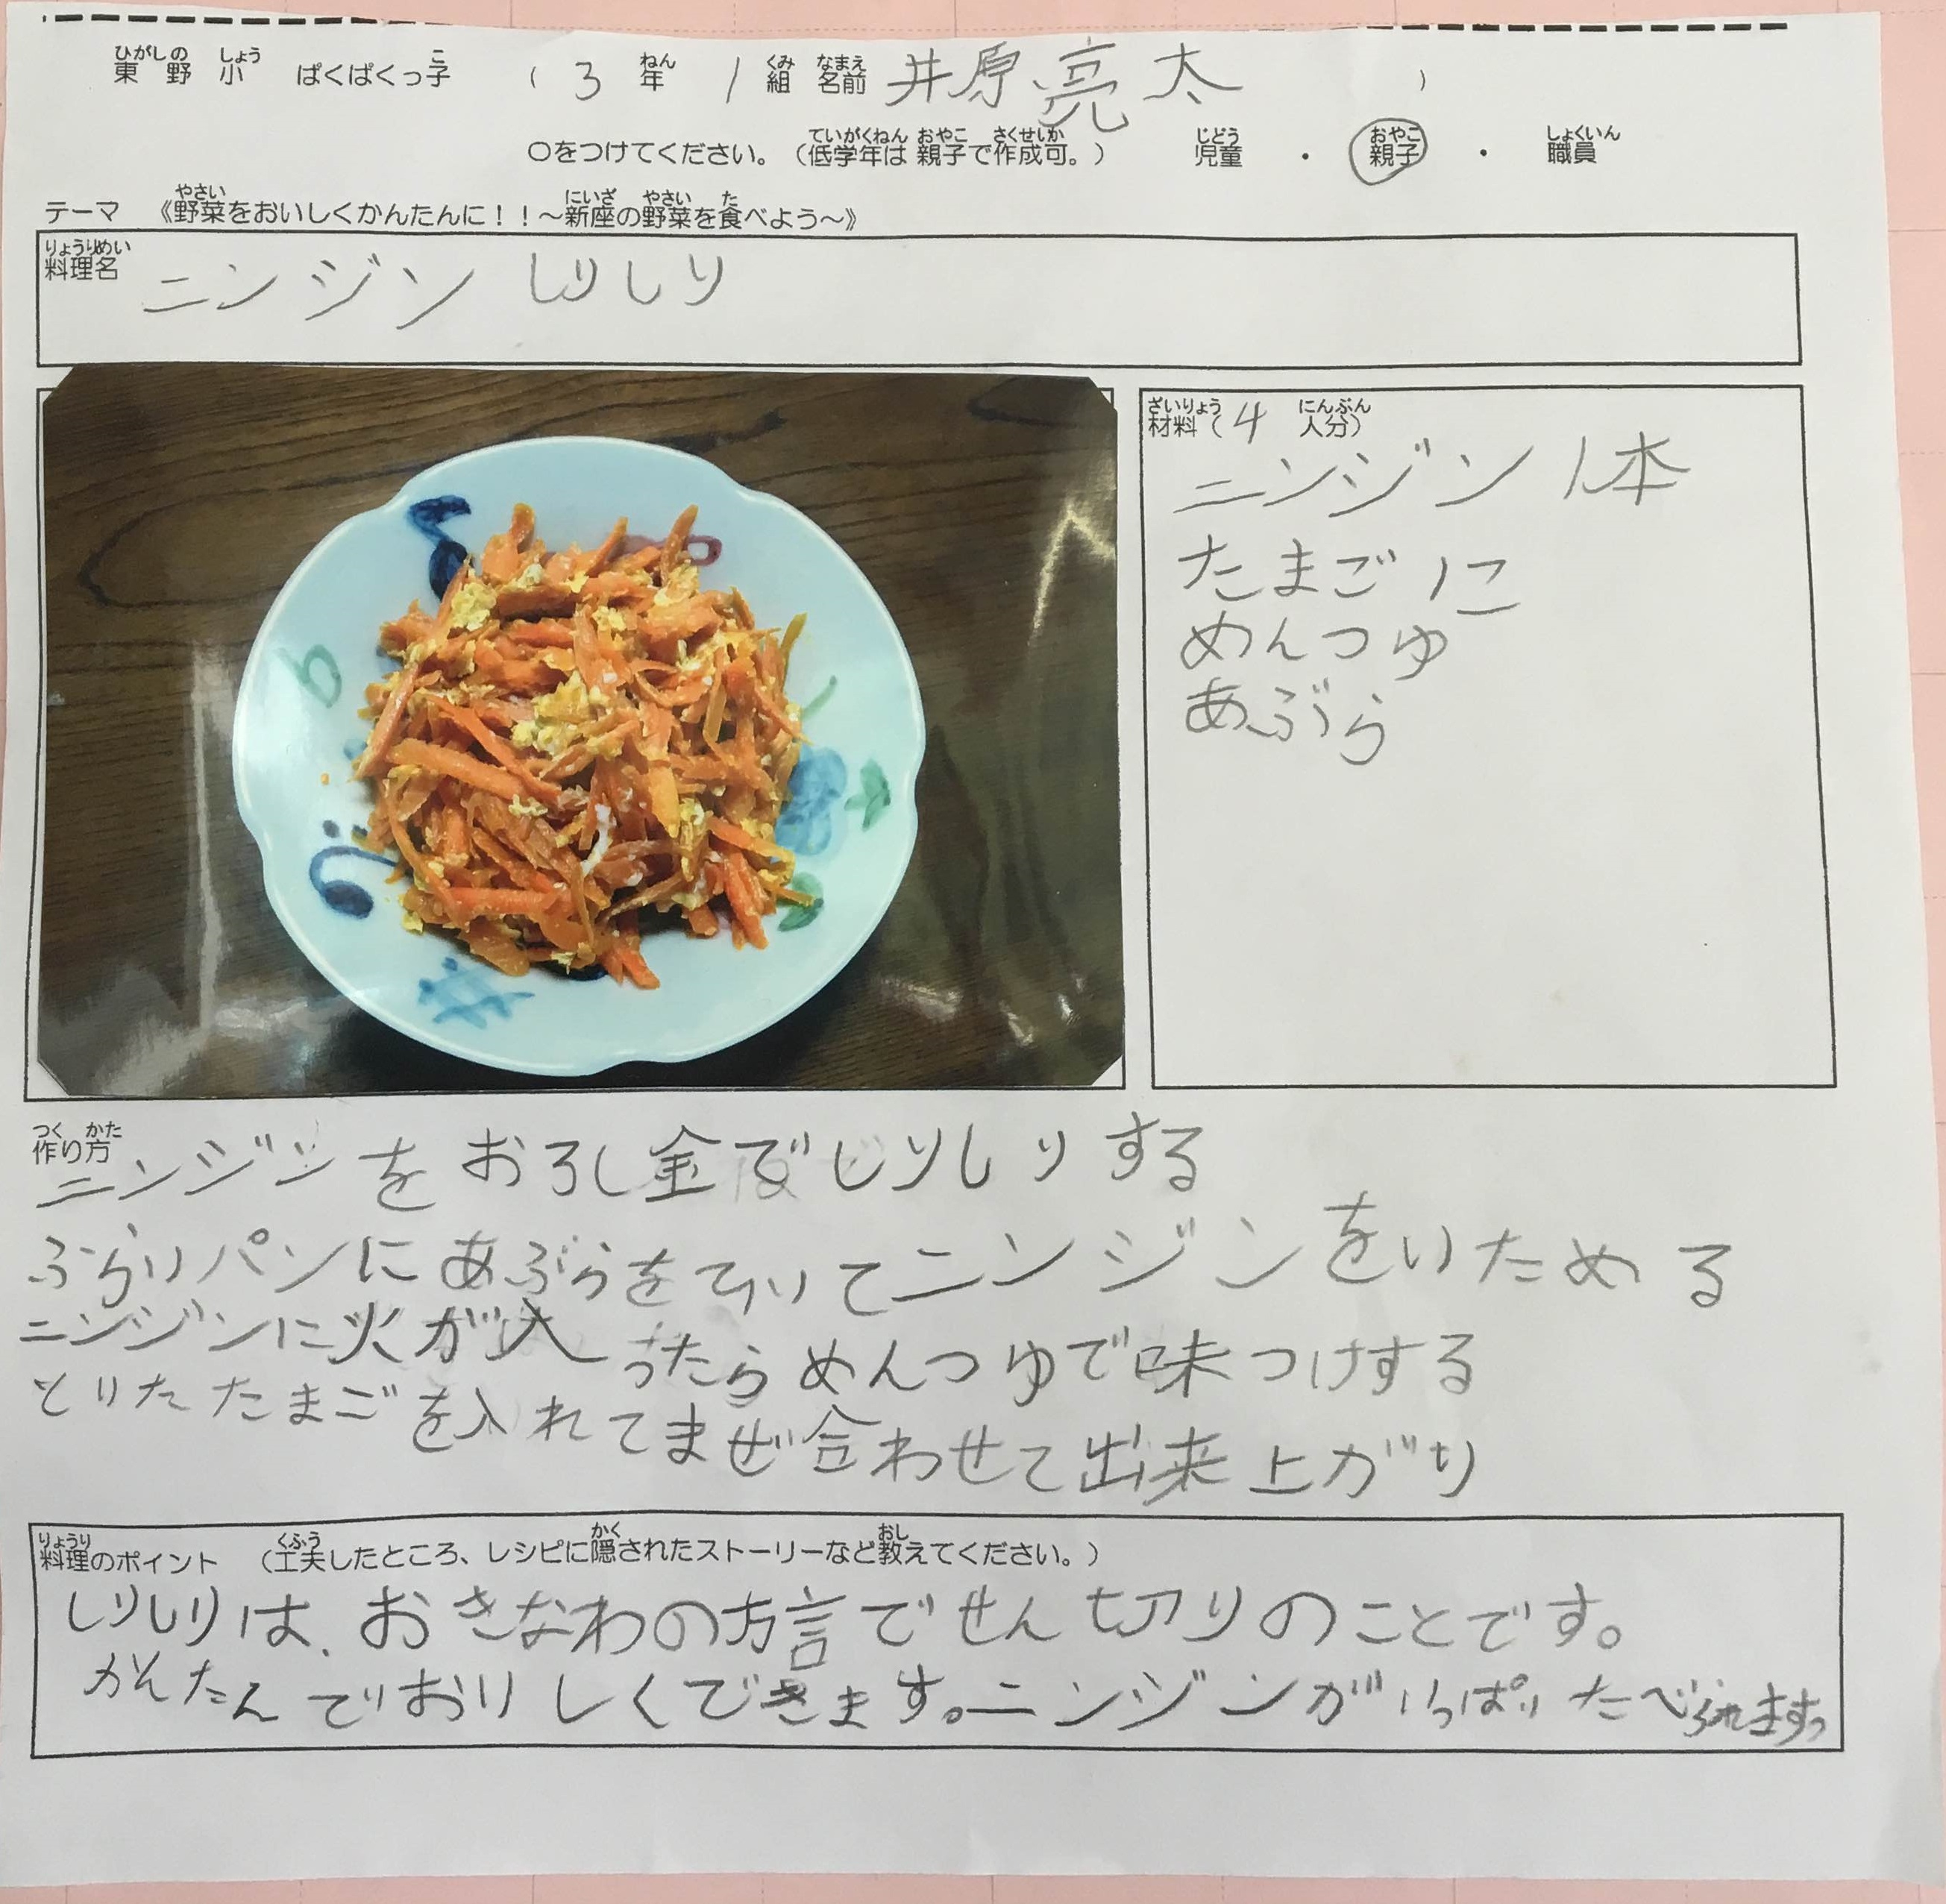 東野小 ぱくぱくっ子 (3年 1組 名前 井原亮太)
○をつけてください。(低学年は親子で作成可。) 児童 ・ 親子 ・ 職員
テーマ 《野菜をおいしくかんたんに!!~新座の野菜を食べよう~》
料理名 ニンジン しりしり
材料(4人分)
ニンジン 1本
たまご 1こ
めんつゆ
あぶら
作り方
ニンジンをおろし金でしりしりする
ふらいパンにあぶらをひいてニンジンをいためる
ニンジンに火が入ったらめんつゆで味つけする
とりたたまごを入れてまぜ合わせて出来上がり
料理のポイント (工夫したところ、レシピに隠されたストーリーなど教えてください。)
しりしりは、おきなわの方言でせん切りのことです。
かんたんでおいしくできます。ニンジンがいっぱいたべられます。